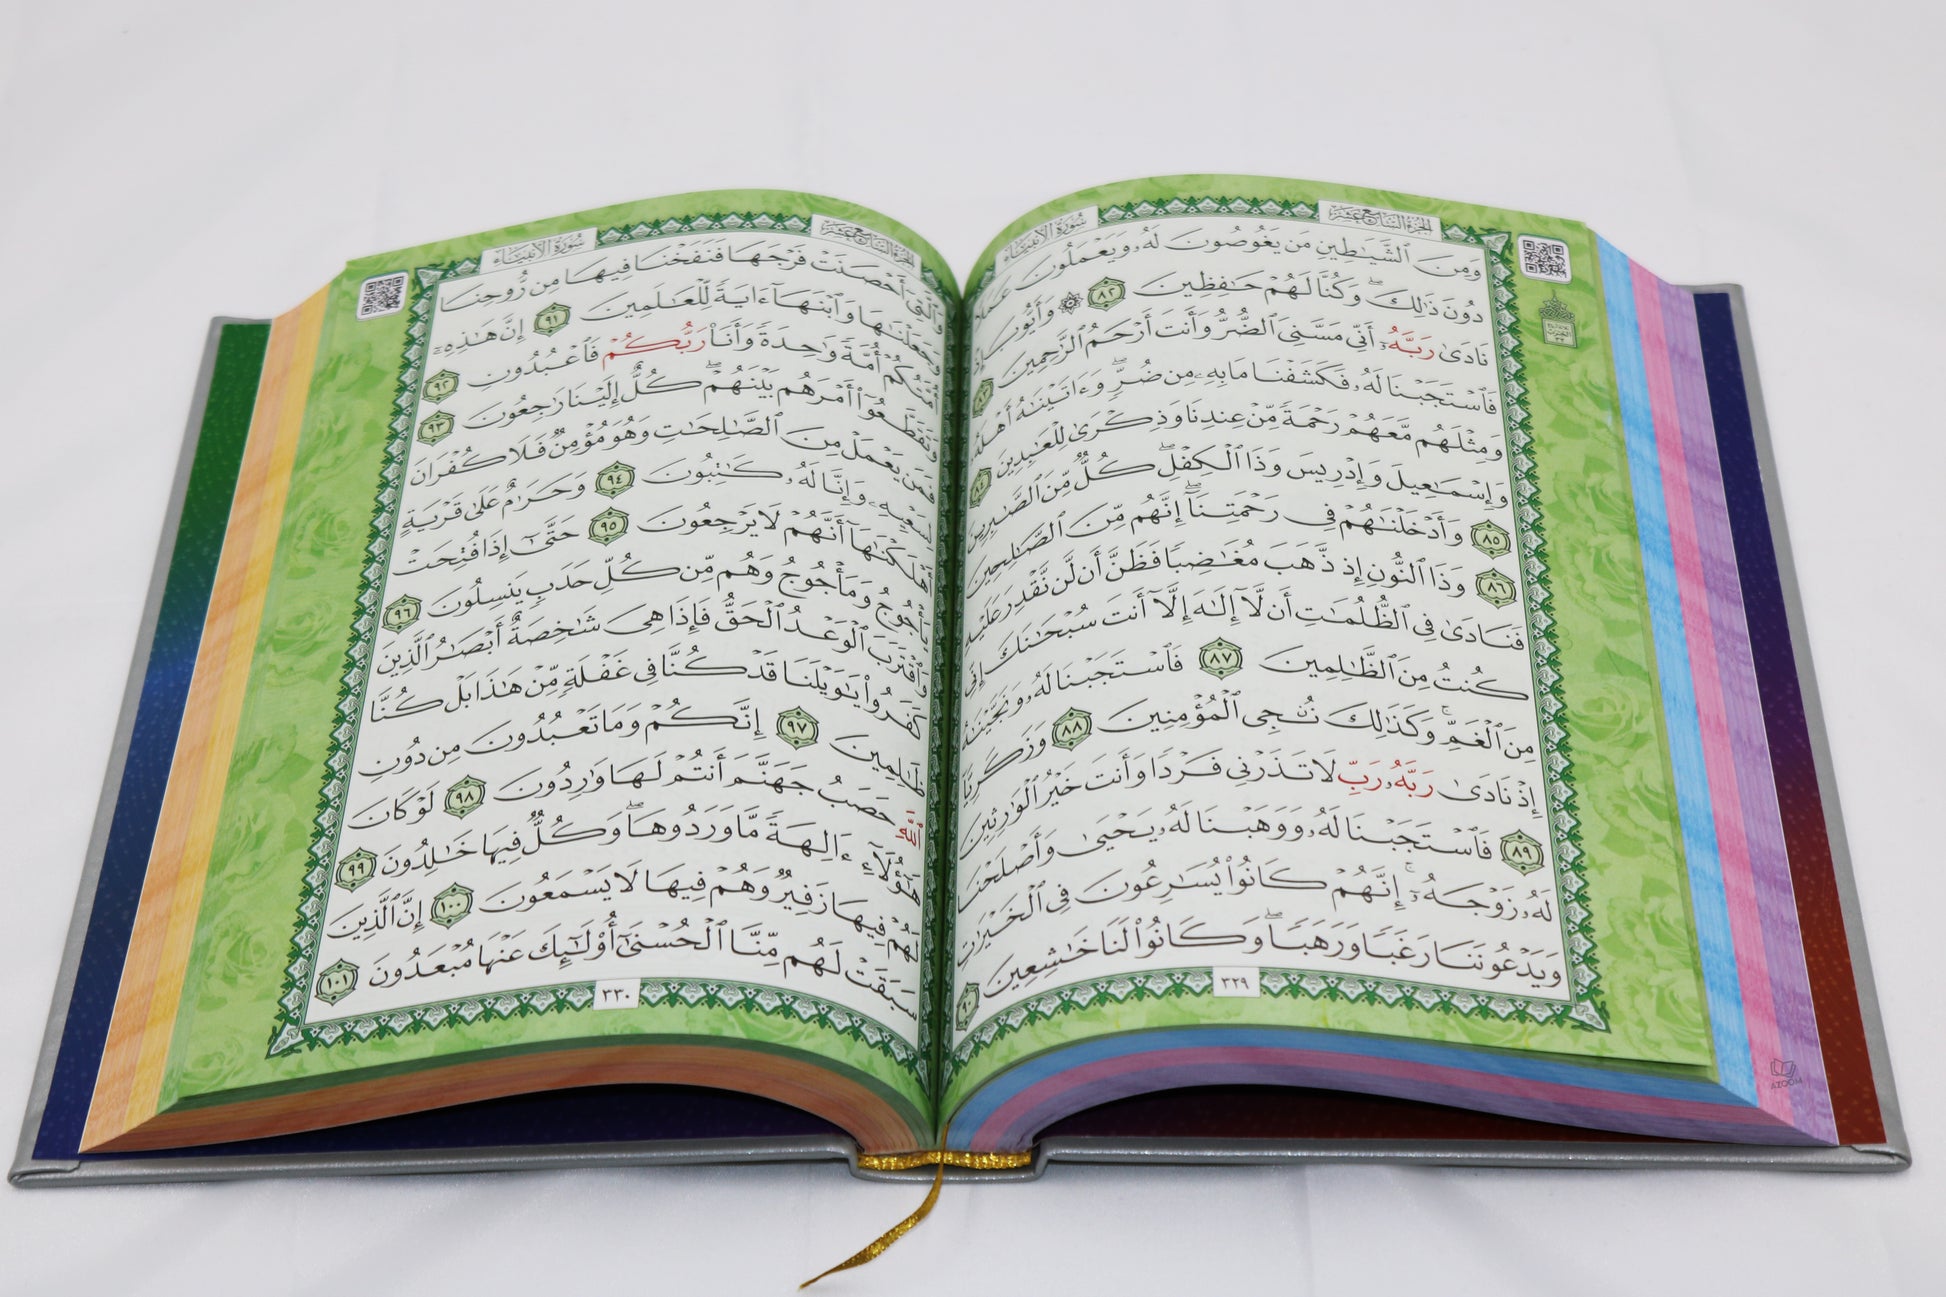 الجزء السابع عشر
سورة الأنبياء
وَمِنَ ٱلشَّيَـٰطِينِ مَن يَغُوصُونَ لَهُۥ وَيَعْمَلُونَ عَمَلًا
دُونَ ذَٰلِكَ ۖ وَكُنَّا لَهُمْ حَـٰفِظِينَ ٨٢ ۞ وَأَيُّوبَ إِذْ
نَادَىٰ رَبَّهُۥٓ أَنِّى مَسَّنِىَ ٱلضُّرُّ وَأَنتَ أَرْحَمُ ٱلرَّٰحِمِينَ ٨٣
فَٱسْتَجَبْنَا لَهُۥ فَكَشَفْنَا مَا بِهِۦ مِن ضُرٍّ ۖ وَءَاتَيْنَـٰهُ أَهْلَهُۥ
وَمِثْلَهُم مَّعَهُمْ رَحْمَةً مِّنْ عِندِنَا وَذِكْرَىٰ لِلْعَـٰبِدِينَ ٨٤
وَإِسْمَـٰعِيلَ وَإِدْرِيسَ وَذَا ٱلْكِفْلِ ۖ كُلٌّ مِّنَ ٱلصَّـٰبِرِينَ
٨٥ وَأَدْخَلْنَـٰهُمْ فِى رَحْمَتِنَآ ۖ إِنَّهُم مِّنَ ٱلصَّـٰلِحِينَ
٨٦ وَذَا ٱلنُّونِ إِذ ذَّهَبَ مُغَـٰضِبًا فَظَنَّ أَن لَّن نَّقْدِرَ عَلَيْهِ
فَنَادَىٰ فِى ٱلظُّلُمَـٰتِ أَن لَّآ إِلَـٰهَ إِلَّآ أَنتَ سُبْحَـٰنَكَ إِنِّى
كُنتُ مِنَ ٱلظَّـٰلِمِينَ ٨٧ فَٱسْتَجَبْنَا لَهُۥ وَنَجَّيْنَـٰهُ
مِنَ ٱلْغَمِّ ۚ وَكَذَٰلِكَ نُـۨجِى ٱلْمُؤْمِنِينَ ٨٨ وَزَكَرِيَّآ
إِذْ نَادَىٰ رَبَّهُۥ رَبِّ لَا تَذَرْنِى فَرْدًا وَأَنتَ خَيْرُ ٱلْوَٰرِثِينَ
٨٩ فَٱسْتَجَبْنَا لَهُۥ وَوَهَبْنَا لَهُۥ يَحْيَىٰ وَأَصْلَحْنَا
لَهُۥ زَوْجَهُۥٓ ۚ إِنَّهُمْ كَانُوا۟ يُسَـٰرِعُونَ فِى ٱلْخَيْرَٰتِ
وَيَدْعُونَنَا رَغَبًا وَرَهَبًا ۖ وَكَانُوا۟ لَنَا خَـٰشِعِينَ ٩٠
٣٢٩
الجزء السابع عشر
سورة الأنبياء
وَٱلَّتِىٓ أَحْصَنَتْ فَرْجَهَا فَنَفَخْنَا فِيهَا مِن رُّوحِنَا
وَجَعَلْنَـٰهَا وَٱبْنَهَآ ءَايَةً لِّلْعَـٰلَمِينَ ٩١ إِنَّ هَـٰذِهِۦٓ
أُمَّتُكُمْ أُمَّةً وَٰحِدَةً وَأَنَا۠ رَبُّكُمْ فَٱعْبُدُونِ ٩٢
وَتَقَطَّعُوٓا۟ أَمْرَهُم بَيْنَهُمْ ۖ كُلٌّ إِلَيْنَا رَٰجِعُونَ ٩٣
فَمَن يَعْمَلْ مِنَ ٱلصَّـٰلِحَـٰتِ وَهُوَ مُؤْمِنٌ فَلَا كُفْرَانَ
لِسَعْيِهِۦ وَإِنَّا لَهُۥ كَـٰتِبُونَ ٩٤ وَحَرَٰمٌ عَلَىٰ قَرْيَةٍ
أَهْلَكْنَـٰهَآ أَنَّهُمْ لَا يَرْجِعُونَ ٩٥ حَتَّىٰٓ إِذَا فُتِحَتْ
يَأْجُوجُ وَمَأْجُوجُ وَهُم مِّن كُلِّ حَدَبٍ يَنسِلُونَ ٩٦
وَٱقْتَرَبَ ٱلْوَعْدُ ٱلْحَقُّ فَإِذَا هِىَ شَـٰخِصَةٌ أَبْصَـٰرُ ٱلَّذِينَ
كَفَرُوا۟ يَـٰوَيْلَنَا قَدْ كُنَّا فِى غَفْلَةٍ مِّنْ هَـٰذَا بَلْ كُنَّا
ظَـٰلِمِينَ ٩٧ إِنَّكُمْ وَمَا تَعْبُدُونَ مِن دُونِ
ٱللَّهِ حَصَبُ جَهَنَّمَ أَنتُمْ لَهَا وَٰرِدُونَ ٩٨ لَوْ كَانَ
هَـٰٓؤُلَآءِ ءَالِهَةً مَّا وَرَدُوهَا ۖ وَكُلٌّ فِيهَا خَـٰلِدُونَ ٩٩
لَهُمْ فِيهَا زَفِيرٌ وَهُمْ فِيهَا لَا يَسْمَعُونَ ١٠٠ إِنَّ ٱلَّذِينَ
سَبَقَتْ لَهُم مِّنَّا ٱلْحُسْنَىٰٓ أُو۟لَـٰٓئِكَ عَنْهَا مُبْعَدُونَ ١٠١
٣٣٠
AZOOM